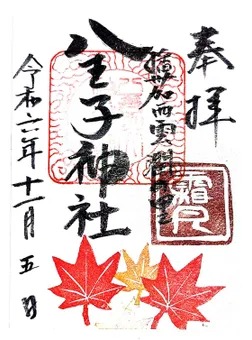 奉拝
霜月
八王子神社
令和六年十一月五日